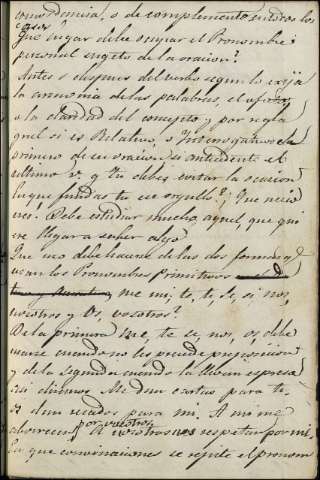 como Denisa, o de complemento en todos los
casos
Que lugar debe ocupar el Pronombre
personal sugeto de la oracion?
Antes o despues del verbo segun lo exija
la armonia de las palabras, el
o la claridad del concepto; por regla
qnel si es Relativo, o Interrogativo el
primero de su oracion, su antecedente el
ultimo v. g Tu debes evitar la ocasion
En que fundas tu orgullo?; Que necio
eres. Debe estudiar mucho aquel, que qui
ere llegar a saber algo
Que uso debe hacerse de las dos formas q'
usan los Pronombres Primitivos
me, mi, te, ti, se, si, nos,
nosotros y Os, vosotros?
De la primera me, te, se, nos, os, debe
usarse cuando no les precede preposicion
y de la segunda cuando la llevan espresa
asi diremos Me dan cartas para ti.
os dan recados para mi. A mi me
aborrecen por vosotros A vosotros os respetan por mi.
Con que convinaciones se sujeta el pronom